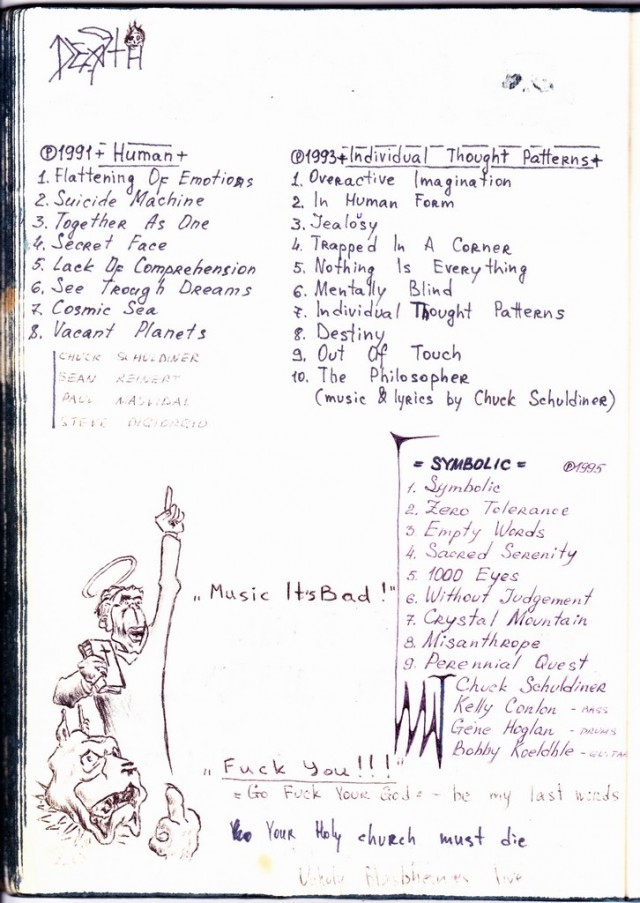 DEATH
℗1991 + Human +
1. Flattening Of Emotions
2. Suicide Machine
3. Together As One
4. Secret Face
5. Lack Of Comprehension
6. See Trough Dreams
7. Cosmic Sea
8. Vacant Planets
CHUCK SCHULDINER
SEAN REINERT
PAUL MASVIDAL
STEVE DIGIORGIO
℗1993 + Individual Thought Patterns +
1. Overactive Imagination
2. In Human Form
3. Jealosy
4. Trapped In A Corner
5. Nothing Is Everything
6. Mentally Blind
7. Individual Thought Patterns
8. Destiny
9. Out Of Touch
10. The Philosopher
(music & lyrics by Chuck Schuldiner)
= SYMBOLIC = ℗1995
1. Symbolic
2. Zero Tolerance
3 Empty Words
4. Sacred Serenity
5. 1000 Eyes
6. Without Judgement
7. Crystal Mountain
8. Misanthrope
9. Perennial Quest
Chuck Schuldiner
Kelly Conlon - BASS
Gene Hoglan - DRUMS
Bobby Koelble -
„Music It's Bad!"
„Fuck You!!!"
= Go Fuck Your God = - be my last words
Your Holy church must die
live